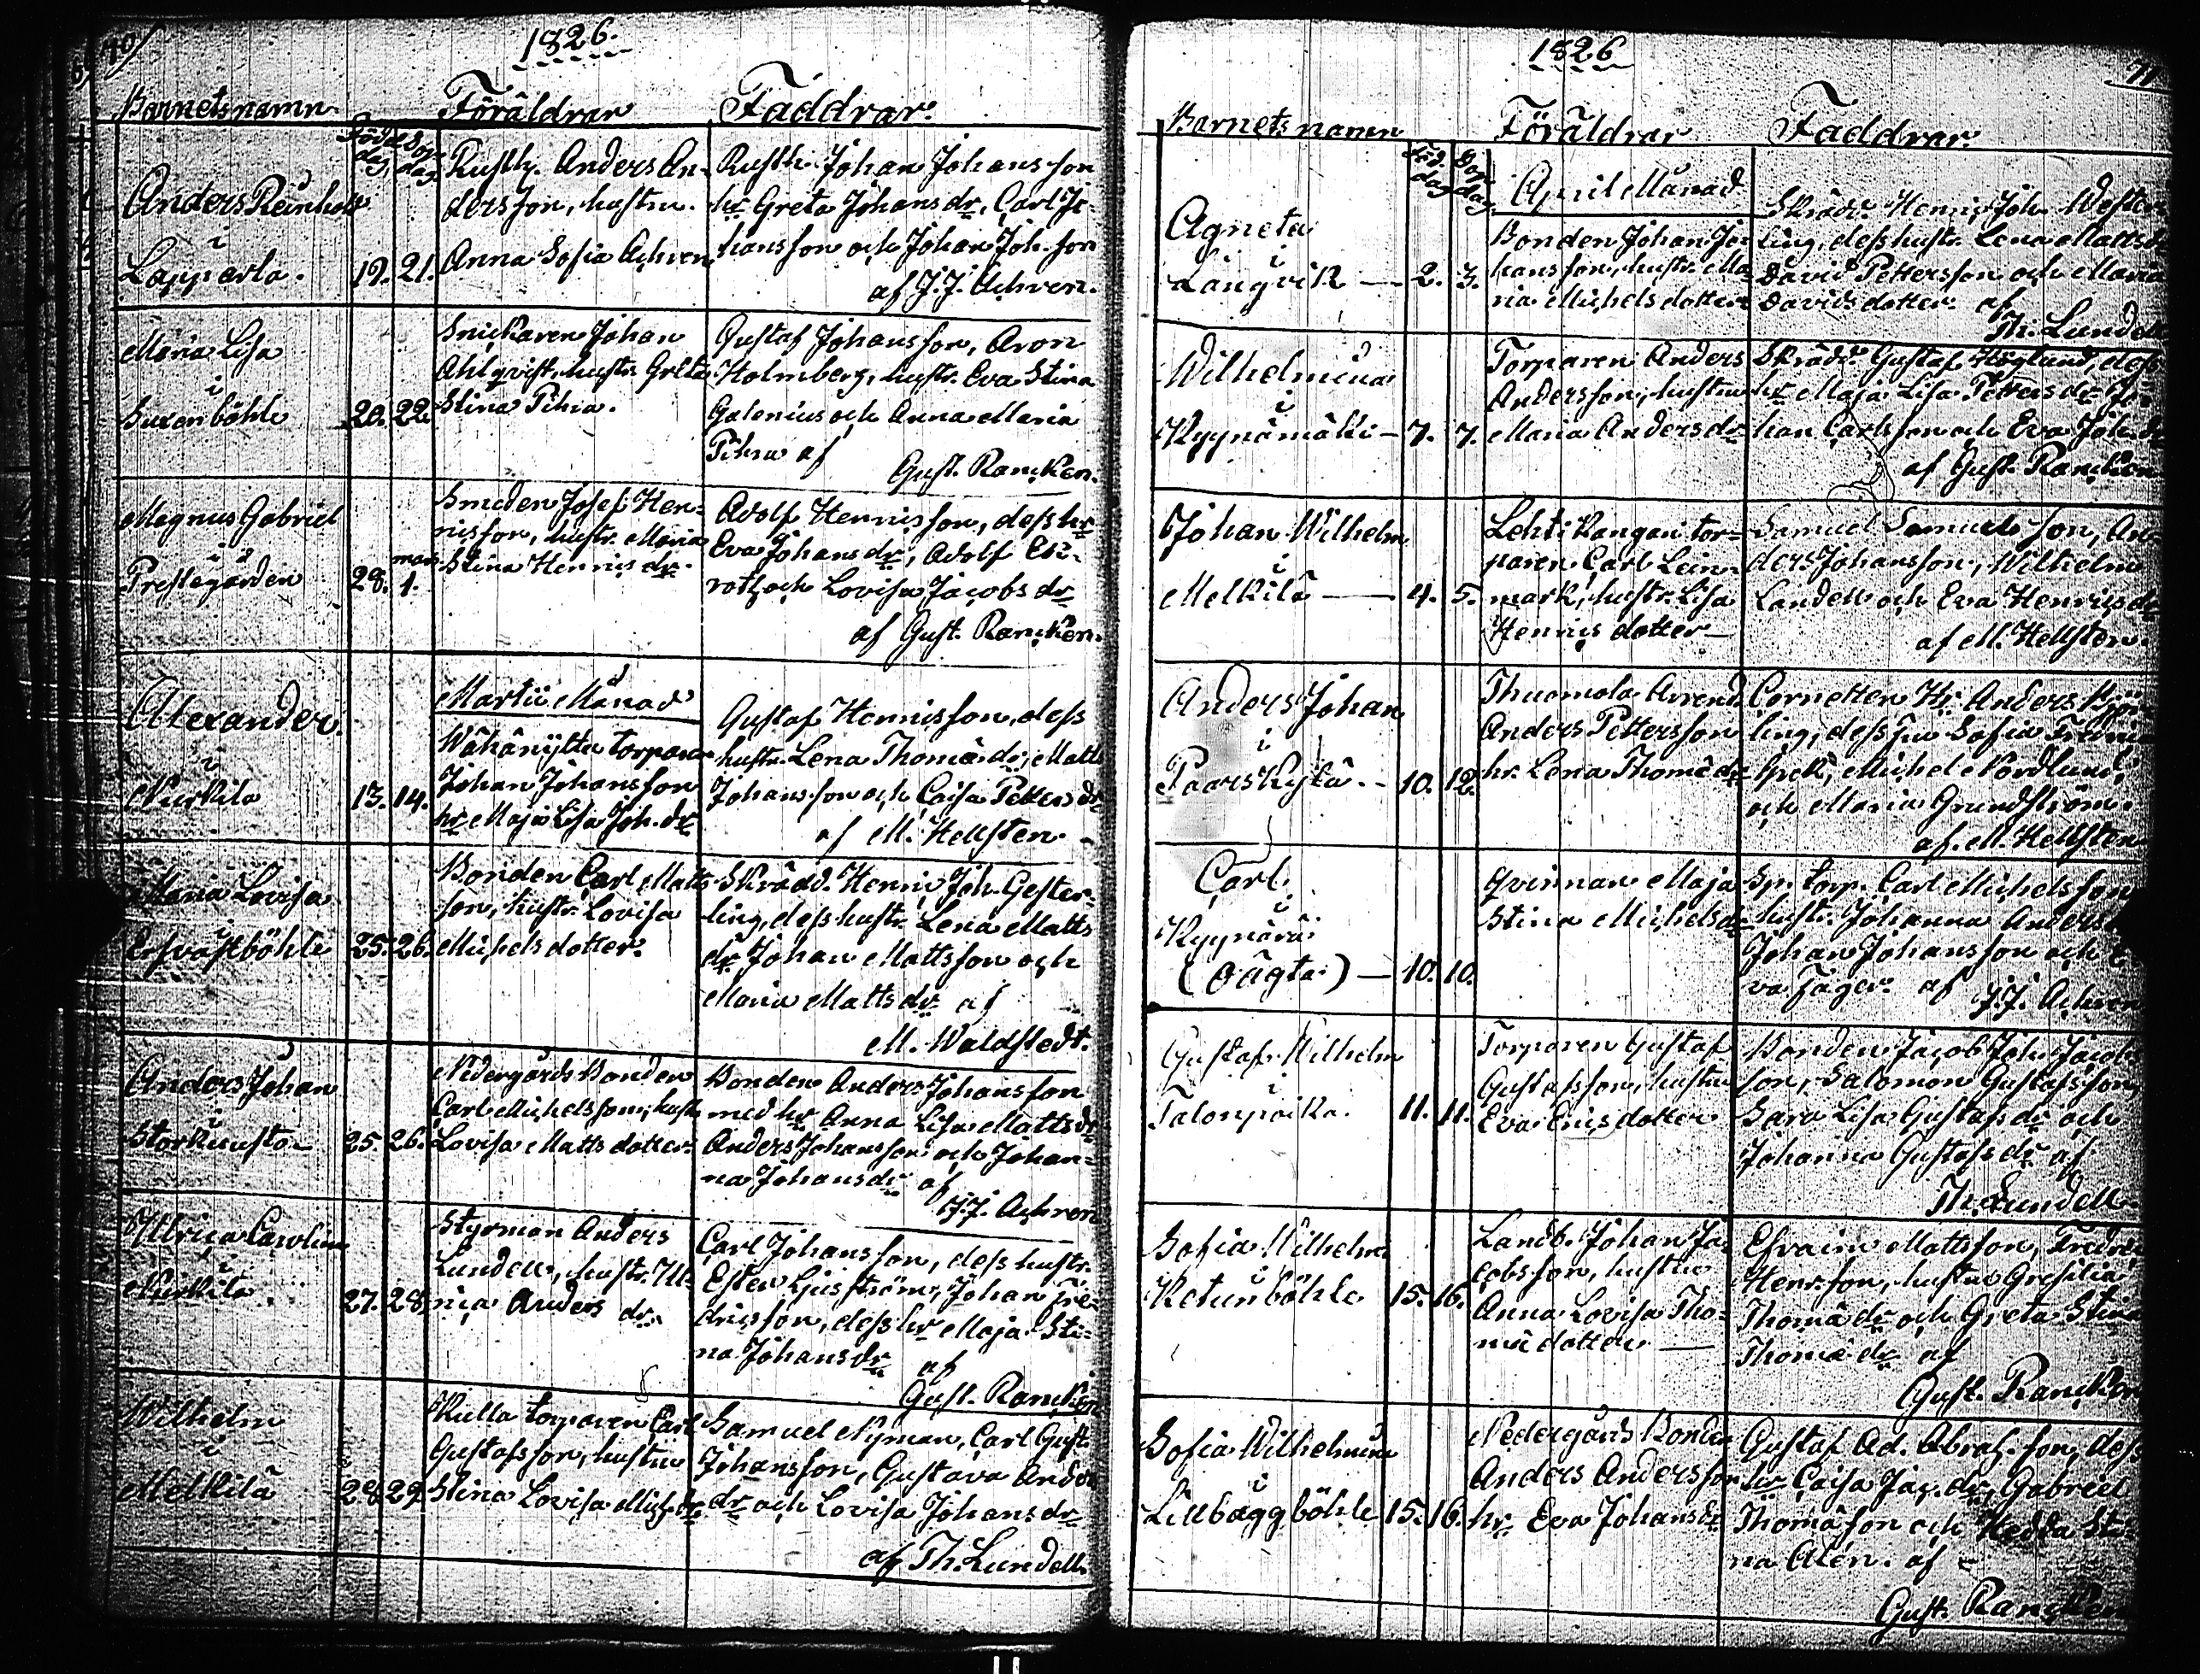 70
1826.
Barnets namn
Föräldrar
Faddrar.
Födelse dag
Dop dag
Anders Reinhold
i
Lapparla.
19. 21.
Rusth. Anders An-
dersson, hustru
Anna Sofia Achren
Rusth. Johan Johansson
hr Greta Johansdr, Carl Jo-
hansson och Johan Joh.son
af J. J. Achren.
Maria Lisa
i
Suxenböhle
20. 22.
Snickaren Johan
Ahlqvist, hustr. Greta
Stina Pihra.
Gustaf Johansson, Aron
Holmberg, hustr. Eva Stina
Galenius och Anna Maria
Pihra af
Gust. Rancken.
Magnus Gabriel
i
Prestegården
28. mars 1.
Smeden Josef Hen-
risson, hustr. Maria
Stina Henricsdr.
Adolf Henrisson, dess hr
Eva Johansdr, Adolf Esi-
roth och Lovisa Jacobs dr
af Gust. Rancken.
Martii Månad
Alexander
i
Nurkila
13. 14.
Wähänyttu torparen
Johan Johansson
hr Maja Lisa Joh.dr
Gustaf Henrisson, dess
hustr. Lena Thomædr, Matts
Johansson och Caisa Petters dr
af M. Hellsten.
Maria Lovisa
i
Esvastböhle
25. 26.
Bonden Carl Matts
son, hustr. Lovisa
Michelsdotter.
Skrädd. Henric Joh. Gester-
ling, dess hustr. Lena Matts
dr, Johan Mattsson och
Maria Mattsdr af
M. Waldstedt.
Anders Johan
i
Storkunsta
25. 26.
Nedergårds Bonden
Carl Michelsson, hustr
Lovisa Mattsdotter.
Bonden Anders Johansson
med hr Anna Lisa Mattsdr
Anders Johansson och Johan-
na Johansdr af
J. J. Achren
Ulrica Carolina
i
Nurkila
27. 28.
Styrman Anders
Lundell, hustr. Ul-
rica Andersdr.
Carl Johansson, dess hustr.
Ester Ljusström, Johan Fre-
dricsson, dess hr Maja Sti-
na Johansdr af
Gust. Rancken
Wilhelm
i
Melkilä
28 29.
Kulla torparen Carl
Gustafsson, hustru
Stina Lovisa Mich.dr
Samuel Nyman, Carl Gust.
Johansson, Gustava Anders
dr och Lovisa Johansdr
af Th. Lundell.
1826
71
Barnets namn
Föräldrar
Faddrar.
Föd. dag
Dop dag
April Månad
Agneta
i
Långvik
2. 3.
Bonden Johan Jo-
hansson, hustr. Ma-
ria Michelsdotter
Skrädd. Henric Joh. Wester-
ling, dess hustr. Lena Mattsdr
David Pettersson och Maria
Davidsdotter. af
Th. Lundell
Wilhelmina
i
Kyynämäki
7. 7.
Torparen Anders
Andersson, hustru
Maria Andersdr
Skrädd. Gustaf Höglund, dess
hr Maja Lisa Pettersdr Jo-
han Carlsson och Eva Joh.dr
af Gust. Rancken
Johan Wilhelm
i
Melkilä
4. 5.
Lehtikangan tor-
paren Carl Lein-
mark, hustr. Lisa
Henricsdotter
Samuel Samuelsson, An-
ders Johansson, Wilhelm
Landell och Eva Henricsdr
af M. Hellsten.
Anders Johan
i
Paarskylä
10. 12.
Thuomola Arrend.
Anders Pettersson
hr. Lena Thomædr
Cornetten Hr Anders Björ-
ling, dess fru Sofia Fredrica
Spek, Michel Nordlund,
och Maria Grundström.
af M. Hellsten
Carl
i
Kyynärä
(Oägta)
10. 10.
Qvinnan Maja
Stina Michelsdr
Sp. torp. Carl Michelsson
hustr. Johanna Anders
Johan Johansson och E-
va Jäger. af J. J. Achren
Gustaf Wilhelm
i
Talonpoika.
11. 11.
Torparen Gustaf
Gustafsson, hustru
Eva Ericsdotter
Bonden Jacob Joh. Jacobs
son, Salomon Gustafsson,
Sara Lisa Gustafsdr och
Johanna Gustafsdr af
Th. Lundell.
Sofia Wilhelmi
i
Ketunböhle
15. 16.
Landb. Johan Ja-
cobsson, hustru
Anna Lovisa Tho-
mædotter
Efraim Mattsson, Fredric
Henr.son, hustru Gresilia
Thomædr och Greta Stina
Thomædr af
Gust. Rancken
Sofia Wilhelmina
i
Lillbäggböhle
15. 16.
Nedergårds Bonden
Anders Andersson
hr. Eva Johansdr
Gustaf Ad. Abrah.son, dess
hr Caisa Jac.dr, Gabriel
Thomæson och Hedda Sti-
na Alén. af
Gust. Rancken